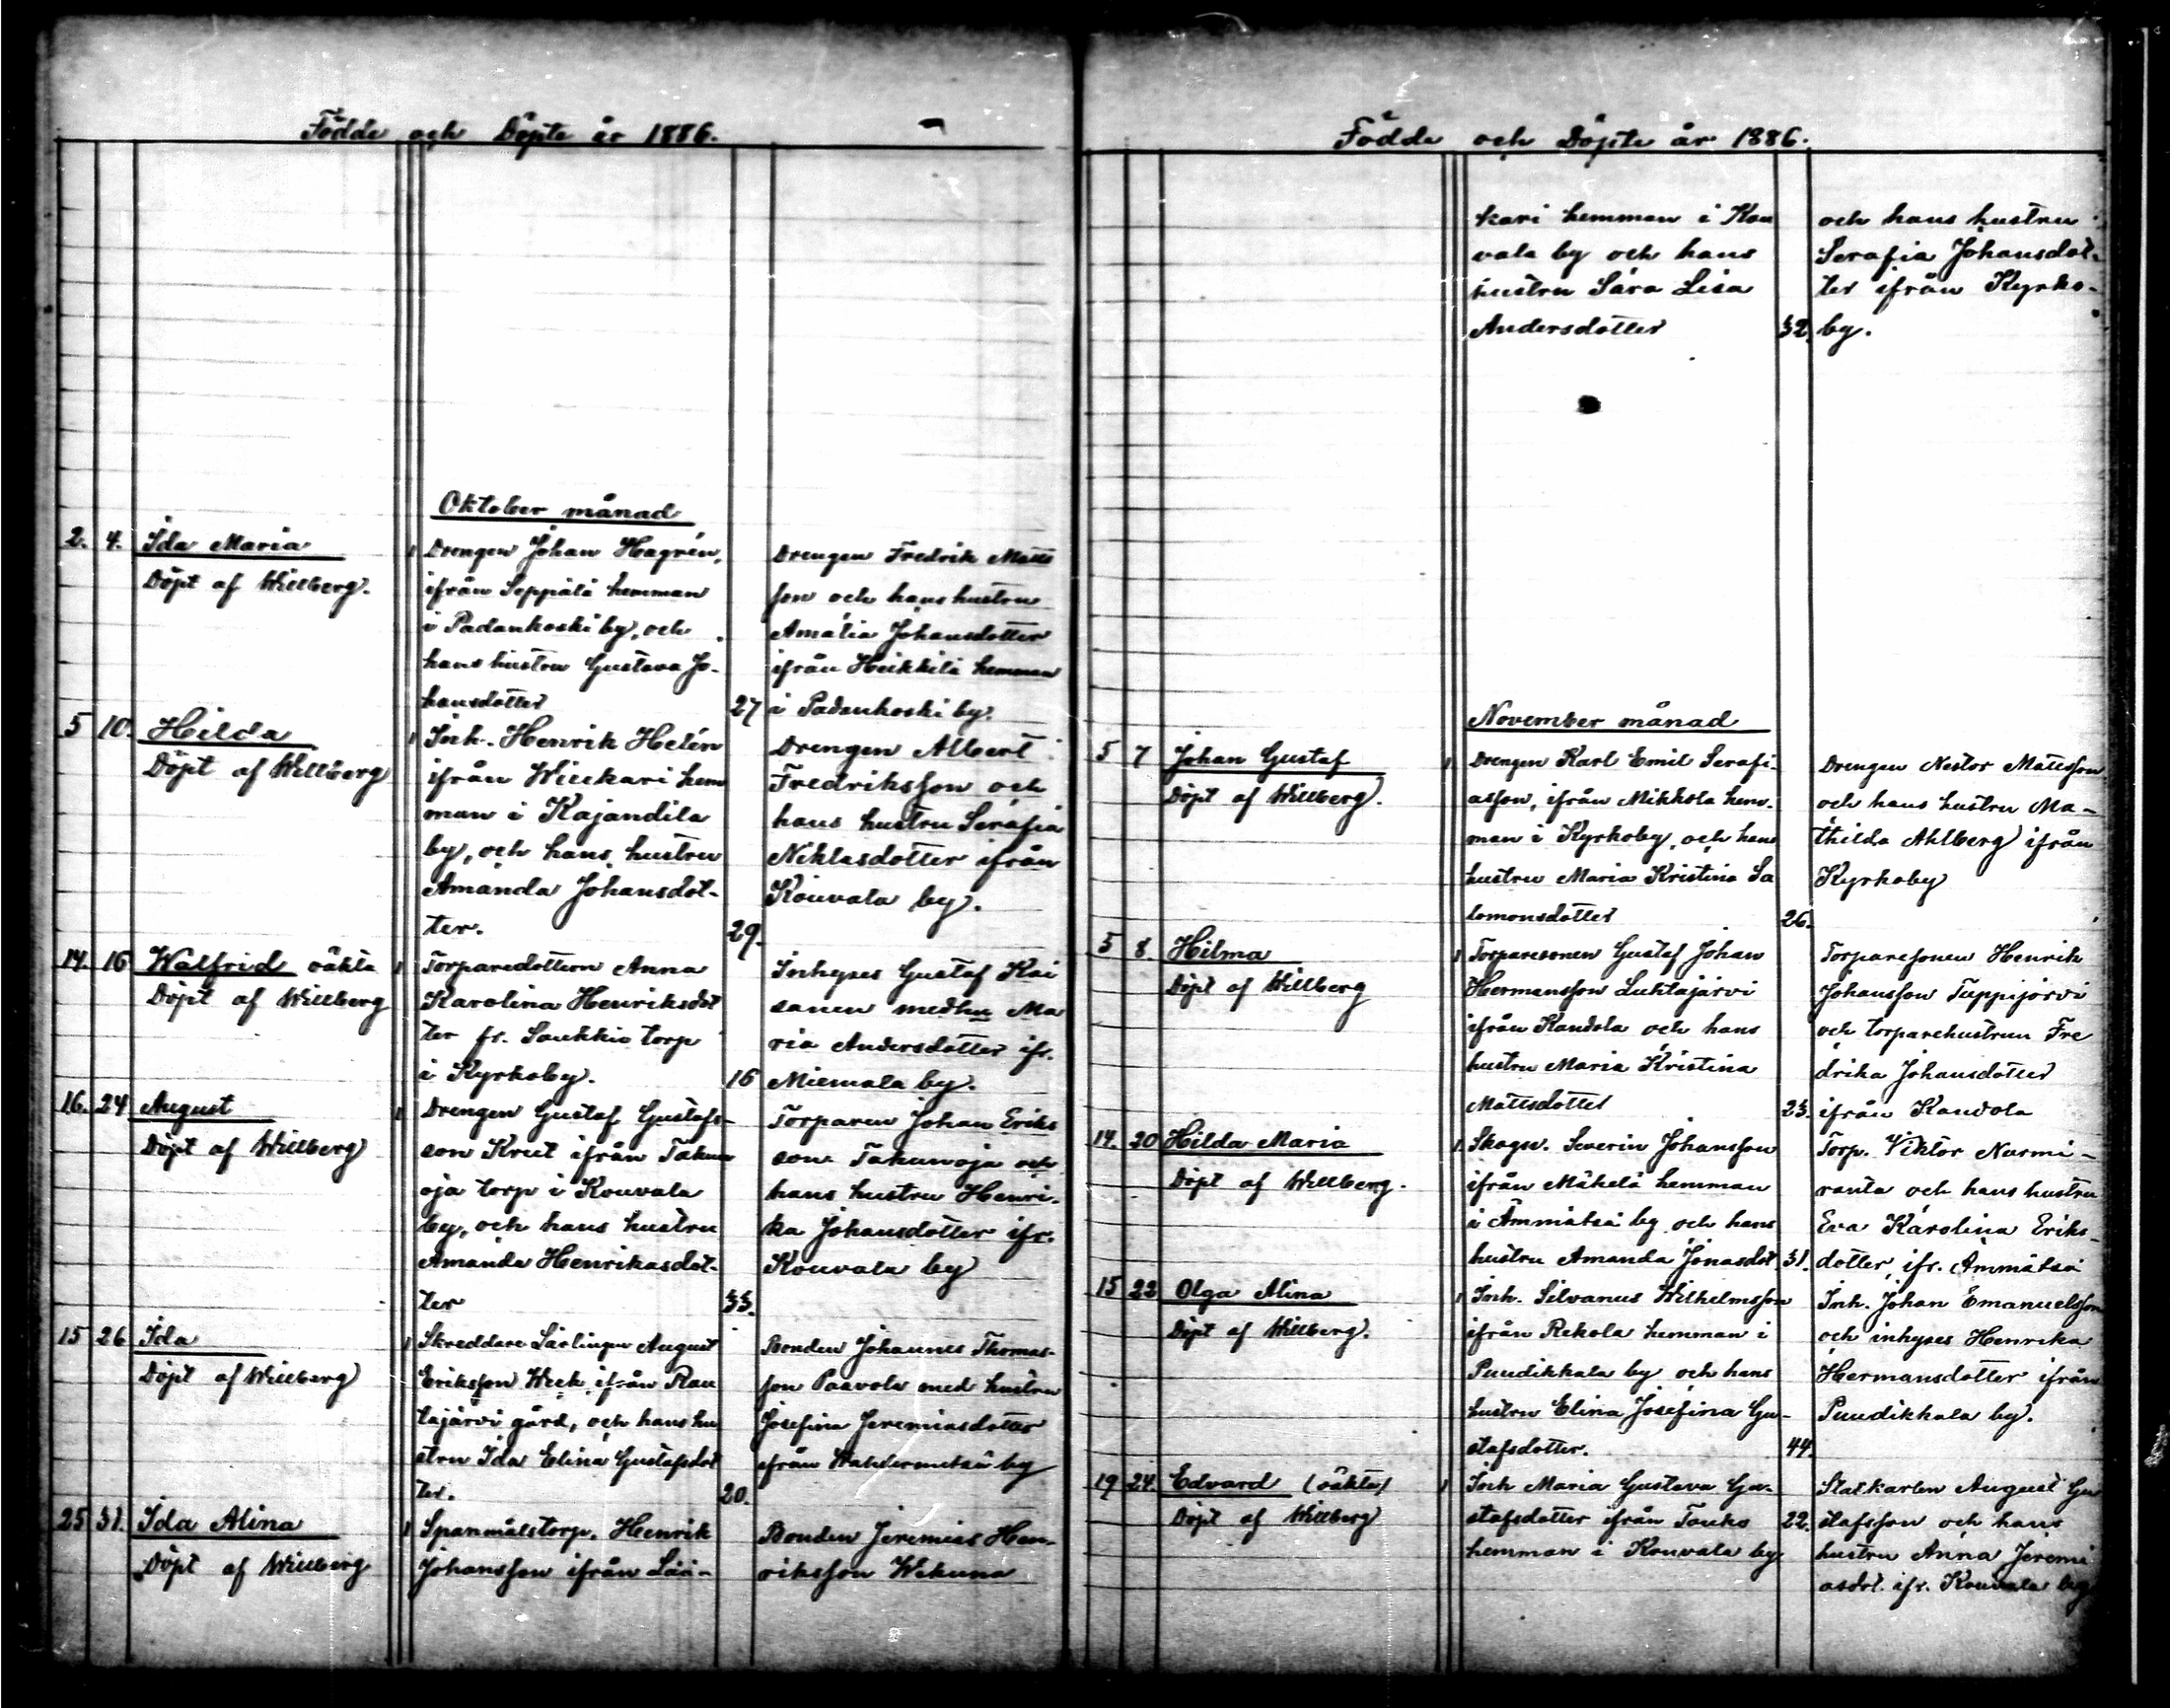 Födde och Döpte år 1886.
Oktober månad
2. 4. Ida Maria
Döpt af Willberg.
1 Drengen Johan Hagrén,
ifrån Seppälä hemman
i Padankoski by, och
hans hustru Gustava Jo-
hansdotter 27
Drengen Fredrik Matts
son och hans hustru
Amalia Johansdotter
ifrån Heikkilä hemman
i Padankoski by.
5 10. Hilda
Döpt af Willberg
1 Inh. Henrik Helén
ifrån Wiukari hem
man i Kajandila
by, och hans hustru
Amanda Johansdot-
ter. 29.
Drengen Albert
Fredriksson och
hans hustru Serafia
Niklasdotter ifrån
Kouvala by.
14. 16 Walfrid oäkta
Döpt af Willberg
1 Torparedottern Anna
Karolina Henriksdot
ter fr. Saukkio torp
i Kyrkoby. 16
Inhyses Gustaf Kai
sanen med hu Ma
ria Andersdotter ifr.
Miemala by.
16. 24 August
Döpt af Willberg
1 Drengen Gustaf Gustafs-
son Kreet ifrån Takun
oja torp i Kouvala
by, och hans hustru
Amanda Henrikasdot-
ter 33.
Torparen Johan Eriks
son Takunoja och
hans hustru Henri-
ka Johansdotter ifr.
Kouvala by
15 26 Ida
Döpt af Willberg
1 Skreddare Lärlingen August
Eriksson Week ifrån Rau
tajärvi gård, och hans hu
stru Ida Elina Gustafsdot
ter. 20.
Bonden Johannes Thomas-
son Paavola med hustru
Josefina Jeremiasdotter
ifrån by
25 31. Ida Alina
Döpt af Willberg
1 Spanmålstorp. Henrik
Johansson ifrån Lää-
Bonden Jeremias Hen-
riksson Wekuna
Födde och Döpte år 1886.
kari hemman i Kou
vala by och hans
hustru Sara Lisa
Andersdotter 32.
och hans hustru
Serafia Johansdot-
ter ifrån Kyrko-
by.
November månad
5 7 Johan Gustaf
Döpt af Willberg.
1. Drengen Karl Emil Serafi-
asson, ifrån Mikkola hem-
man i Kyrkoby, och hans
hustru Maria Kristina Sa
lomonsdotter 26.
Drengen Nestor Mattsson
och hans hustru Ma-
thilda Ahlberg ifrån
Kyrkoby
5 8. Hilma
Döpt af Willberg
1 Torparesonen Gustaf Johan
Hermansson Luhtajärvi
ifrån Kandola och hans
hustru Maria Kristina
Mattsdotter 23.
Torparesonen Henrik
Johansson Tuppijärvi
och torparehustrun Fre
drika Johansdotter
ifrån Kandola
14. 20 Hilda Maria
Döpt af Willberg.
1. Skogsv. Severin Johansson
ifrån Mäkelä hemman
i Ämmätsä by och hans
hustru Amanda Jonasdot 31.
Torp. Viktor Nurmi-
ranta och hans hustru
Eva Karolina Eriks-
dotter, ifr. Ämmätsä
15 22 Olga Alina
Döpt af Willberg.
1 Inh. Silvanus Wilhelmsson
ifrån Rekola hemman i
Puudikkala by och hans
hustru Elina Josefina Gu-
stafsdotter. 44.
Inh. Johan Emanuelsson
och inhyses Henrika
Hermansdotter ifrån
Puudikkala by.
19 24. Edvard (oäkta)
Döpt af Willberg
1 Inh Maria Gustava Gu-
stafsdotter ifrån Touko 22.
hemman i Kouvala by
Statkarlen August Gu
stafsson och hans
hustru Anna Jeremi
asdot. ifr. Kouvala by